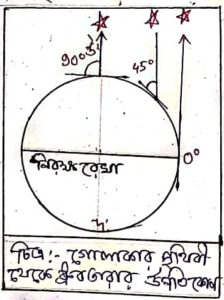 90° উঃ
45°
নিরক্ষরেখা
0°
দঃ
চিত্র :- গোলাকার পৃথিবী
থেকে ধ্রুবতারার উন্নতি কোণ